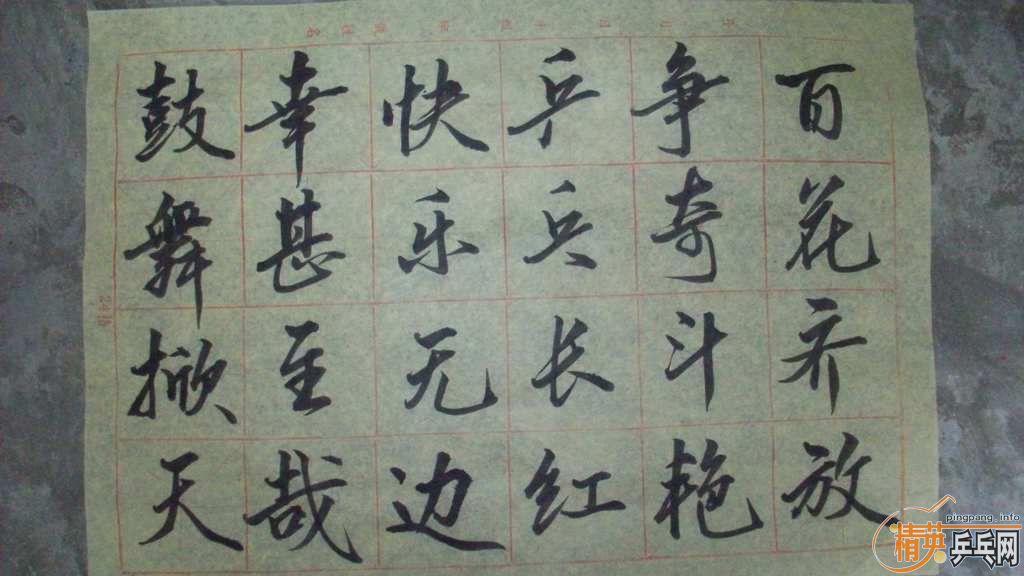 百花齐放
争奇斗艳
乒乓长红
快乐无边
幸甚至哉
鼓舞掀天
pingpang.info
精英乒乓网